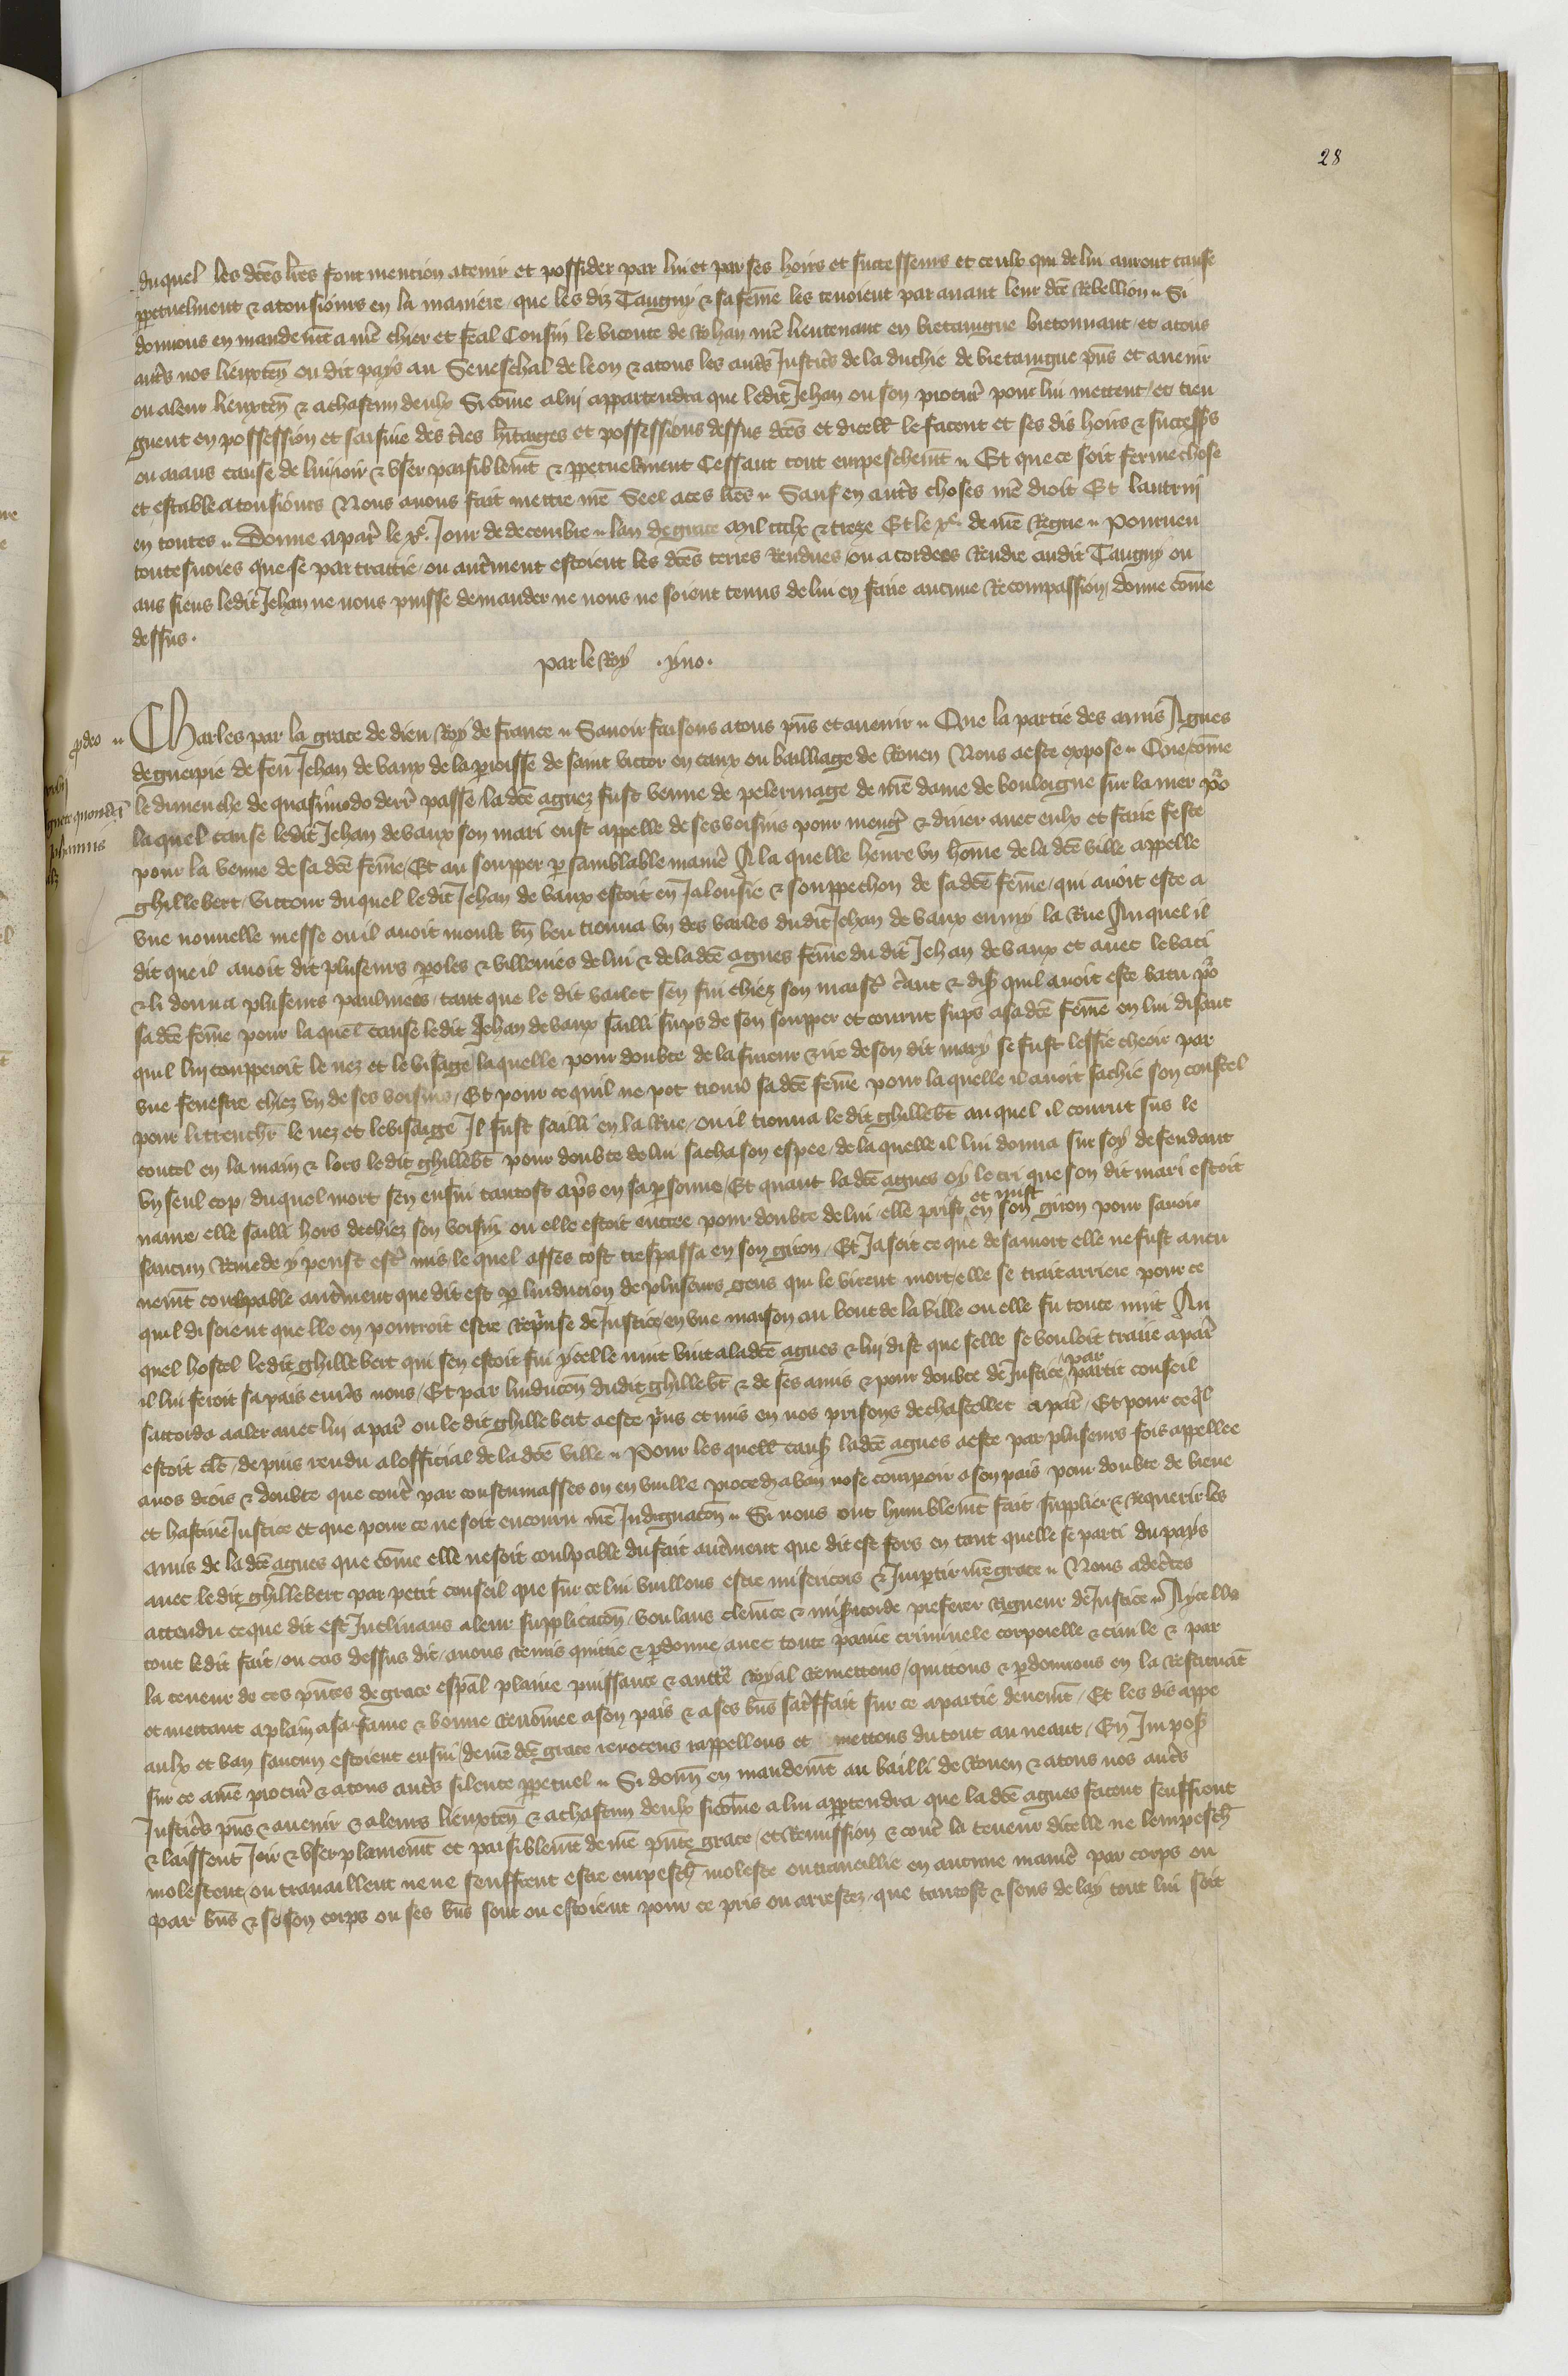 28
duquel les dces lres font mention a tenir et possider par lui et par ses hoirs et successeurs et ceulx qui de lui auront cause
ppetuelment & a tousiours en la maniere que les diz Tanguy & sa feme les tenoient par auant leur dce Rebellion Si
donnons en mandemt a nre chier et feal Cousin le viconte de Rohan nre lieutenant en bretaingne bretonnant et a tous
autrs nos lieuxten ou dit pays au Seneschal de leon & a tous les autrs Justicrs de la duchie de bretaingne pns et auenir
ou a leur lieuxten & a chascun deulx Si come a lui appartendra que le dit Jehan ou son procur pour lui mettent et tien
gnent en possession et saisine des tres hitaiges et possessions dessus dces et dicell le facent et ses dis hoirs & success
ou aians cause de lui ioir & vser paisiblemt & ppetuelment Cessant tout empeschemt Et que ce soit ferme chose
et estable a tousiours Nous auons fait mettre nre Seel a ces lres Sauf en autrs choses nre droit Et lautrui
en toutes Donne a par le xe Jour de decembre lan de grace mil ccclx & treze Et le xe de nre Regne Pourueu
toutesuoies que se par traittie ou autrment estoient les dces terres Rendues ou acordees Rendre au dit Tanguy ou
aus siens le dit Jehan ne nous puisse demander ne nous ne soient tenus de lui en faire aucune Recompassion donne come
dessus.
par le Roy .yuo.
Charles par la grace de dieu Roy de france Sauoir faisons a tous pns et auenir Que la partie des amis Agnes
deguerpie de feu Jehan de vaux de la proisse de saint victor en caux ou bailliage de Rouen Nous a este expose Que come
le dimenche de quasimodo derr passe la dce agnez fust venue de pelerinage de nre dame de bouloigne sur la mer po
la quel cause le dit Jehan de vaux son mari eust appelle de ses voisins pour mengr & diner auec eulx et faire feste
pour la venue de sa dce feme Et au soupper p samblable manie A la quelle heure vn home de la dce ville appelle
ghillebert victour duquel le dit Jehan de vaux estoit en Jalousie & souppechon de sa dce feme qui auoit este a
vne nouuelle messe ou il auoit moult bn beu trouua vn des varles du dit Jehan de vaux enmy la Rue Auquel il
dit que il auoit dit pluseurs poles & villenies de lui & de la dce agnes feme du dit Jehan de vaux et auec le bati
& li donna pluseurs paulmees tant que le dit varlet sen fui chiez son maistr criant & dis quil auoit este batu po
sa dce feme pour la quel cause le dit Jehan de vaux sailli sups de son soupper et courut sups a sa dce feme en lui disant
quil lui coupperoit le nez et le visage laquelle pour doubte de la fureur & ire de son dit mary se fust lessie cheoir par
vne fenestre chiez vn de ses voisins Et pour ce quil ne pot trouur sa dce feme pour la quelle il auoit sachie son coustel
pour li trenchr le nez et le visaige Il fust sailli en la Rue ou il trouua le dit ghillebt au quel il courut sus le
coutel en la main & lors le dit ghillebt pour doubte de lui sacha son espee de la quelle il lui donna sur soy defendant
vn seul cop duquel mort sen ensui tantost aprs en sa psonne Et quant la dce agnes oy le cri que son dit mari estoit
naure elle sailli hors de chiez son voisin ou elle estoit entree pour doubte de lui elle prist et mist en son giron pour sauoir
saucun Remede y peust estr mis le quel asses tost trespassa en son giron Et Ja soit ce que de sa mort elle ne fust aucu
nemt coulpable autrment que dit est p linducion de pluseurs gens qui le virent mort elle se trait arriere pour ce
quil disoient quelle en pourroit estre reprise de Justice en vne maison au bout de la ville ou elle fu toute nuit Au
quel hostel le dit ghillebert qui sen estoit fui ycelle nuit vint a la dce agnes & lui dist que selle se vouloit traire a par
il lui feroit sa pais enurs nous Et par linducon du dit ghillebt & de ses amis & pour doubte de Justice par partit conseil
saccorda a aler auec lui a par ou le dit ghillebert a este pris et mis en nos prisons de chastellet a par Et pour ce ql
estoit clc de puis rendu a lofficial de la dce ville Pour les quell caus la dce agnes a este par pluseurs fois appellee
a nos drois & doubte que contr par coustumasses on en vuille proceder a ban nose comparoir a son pais pour doubte de brieue
et hastiue Justice et que pour ce ne soit encouru nre Indignacon Si nous ont humblemt fait supplier & Requerir les
amis de la dce agnes que come elle ne soit coulpable du fait autrment que dit est fors en tant quelle se parti du pays
auec le dit ghillebert par petit conseil que sur ce lui vuillons estre misericors & Impartir nre grace Nous adcertes
attendu ce que dit est Inclinans a leur supplicacon voulans clemce & misicorde preferer Rigueur de Justice A ycelle
tout le dit fait ou cas dessus dit auons remis quittie & pdonne auec toute paine criminele corporelle & ciuile & par
la teneur de ces pntes de grace espal plaine puissance & auttre Royal Remettons quittons & pdonnons en la Restituat
et mettant a plain a sa fame & bonne Renomee a son pais & a ses bns satisffait sur ce a partie deuemt Et les dis appe
aulx et ban saucun estoient ensui de nre dce grace reuocons rappellons et mettons du tout au neant En Impos
sur ce a nre procur & a tous autrs silence ppetuel Si donn en mandemt au bailli de Rouen & a tous nos autrs
Justicrs pns & auenir & a leurs lieuxten & a chascun deulx sicome a lui apptendra que la dce agnes facent seuffrent
& laissent Joir & vser plainemt et paisiblemt de nre pnte grace et Remission & contr la teneur dicelle ne lempesch
molestent ou trauaillent ne ne seuffrent estre empesch moleste ou trauaillie en aucune manie par corps ou
par bns & se son corps ou ses bns sont ou estoient pour ce pris ou arrestez que tantost & sens delay tout lui soit